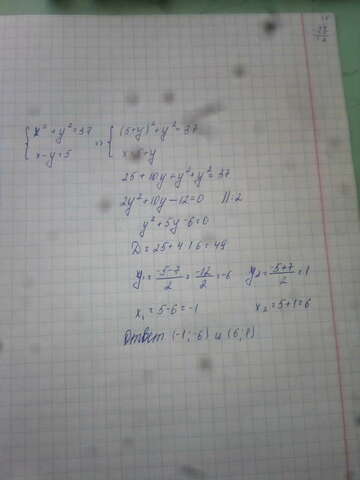 { x² + y² = 37 => { (5+y)² + y² = 37
x - y = 5 x = 5+y
25 + 10y + y² + y² = 37
2y² + 10y - 12 = 0 ||:2
y² + 5y - 6 = 0
D = 25 + 4·6 = 49
y₁ = (-5-7)/2 = -12/2 = -6 y₂ = (-5+7)/2 = 1
x₁ = 5-6 = -1 x₂ = 5+1 = 6
Ответ (-1; -6) и (6; 1)